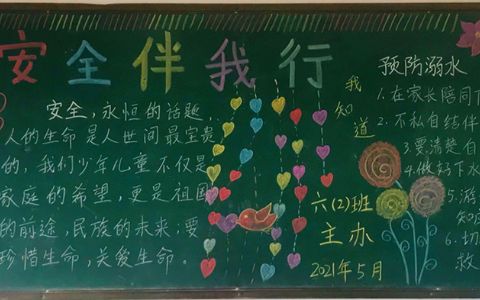 安全伴我行
安全,永恒的话题,
人的生命是人世间最宝贵
的,我们少年儿童不仅是
家庭的希望,更是祖国
的前途,民族的未来;要
珍惜生命,关爱生命。
我知道
六(2)班
主办
2021年5月
预防溺水
1.在家长陪同下
2.不私自结伴
3要清楚自
4.做好下水
5.游
知
6.切
救